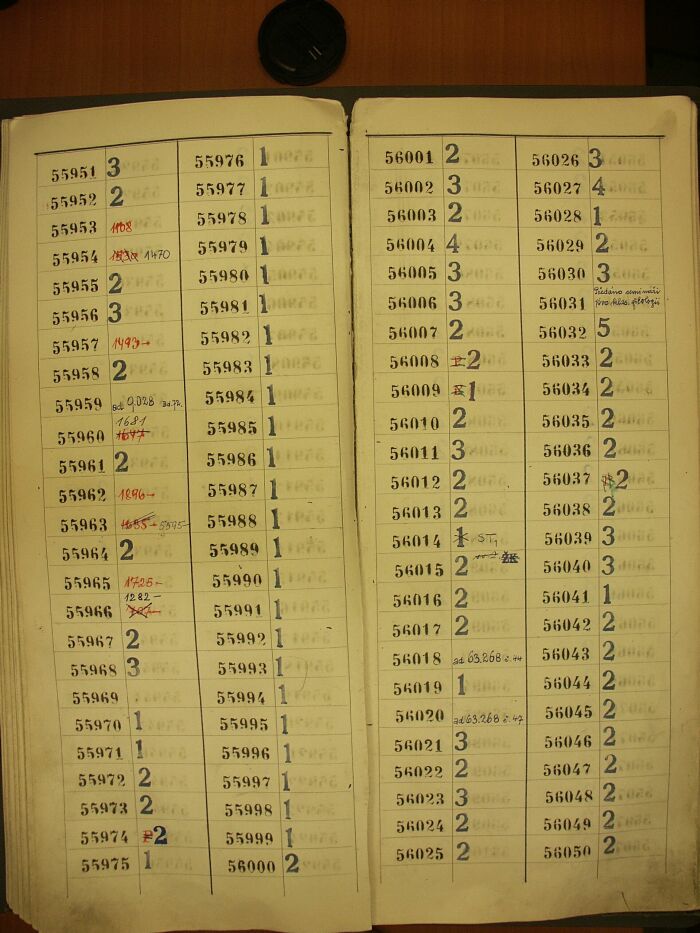 55951 3
55952 2
55953 1108
55954 1470
55955 2
55956 3
55957 1493-
55958 2
55959 ad 9028
55960 1681
1647
55961 2
55962 1896-
55963 1685- 5595-
55964 2
55965 1725-
55966 1282-
55967 2
55968 3
55969
55970 1
55971 1
55972 2
55973 2
55974 2
55975 1
55976 1
55977 1
55978 1
55979 1
55980 1
55981 1
55982 1
55983 1
55984 1
55985 1
55986 1
55987 1
55988 1
55989 1
55990 1
55991 1
55992 1
55993 1
55994 1
55995 1
55996 1
55997 1
55998 1
55999 1
56000 2
56001 2
56002 3
56003 2
56004 4
56005 3
56006 3
56007 2
56008 2
56009 1
56010 2
56011 3
56012 2
56013 2
56014 1 ST,
56015 2
56016 2
56017 2
56018 ad 63.268 č. 44
56019 1
56020 ad 63.268 č. 47
56021 3
56022 2
56023 3
56024 2
56025 2
56026 3
56027 4
56028 1
56029 2
56030 3
56031 semináři
pro klas. filologii
56032 5
56033 2
56034 2
56035 2
56036 2
56037 2
56038 2
56039 3
56040 3
56041 1
56042 2
56043 2
56044 2
56045 2
56046 2
56047 2
56048 2
56049 2
56050 2